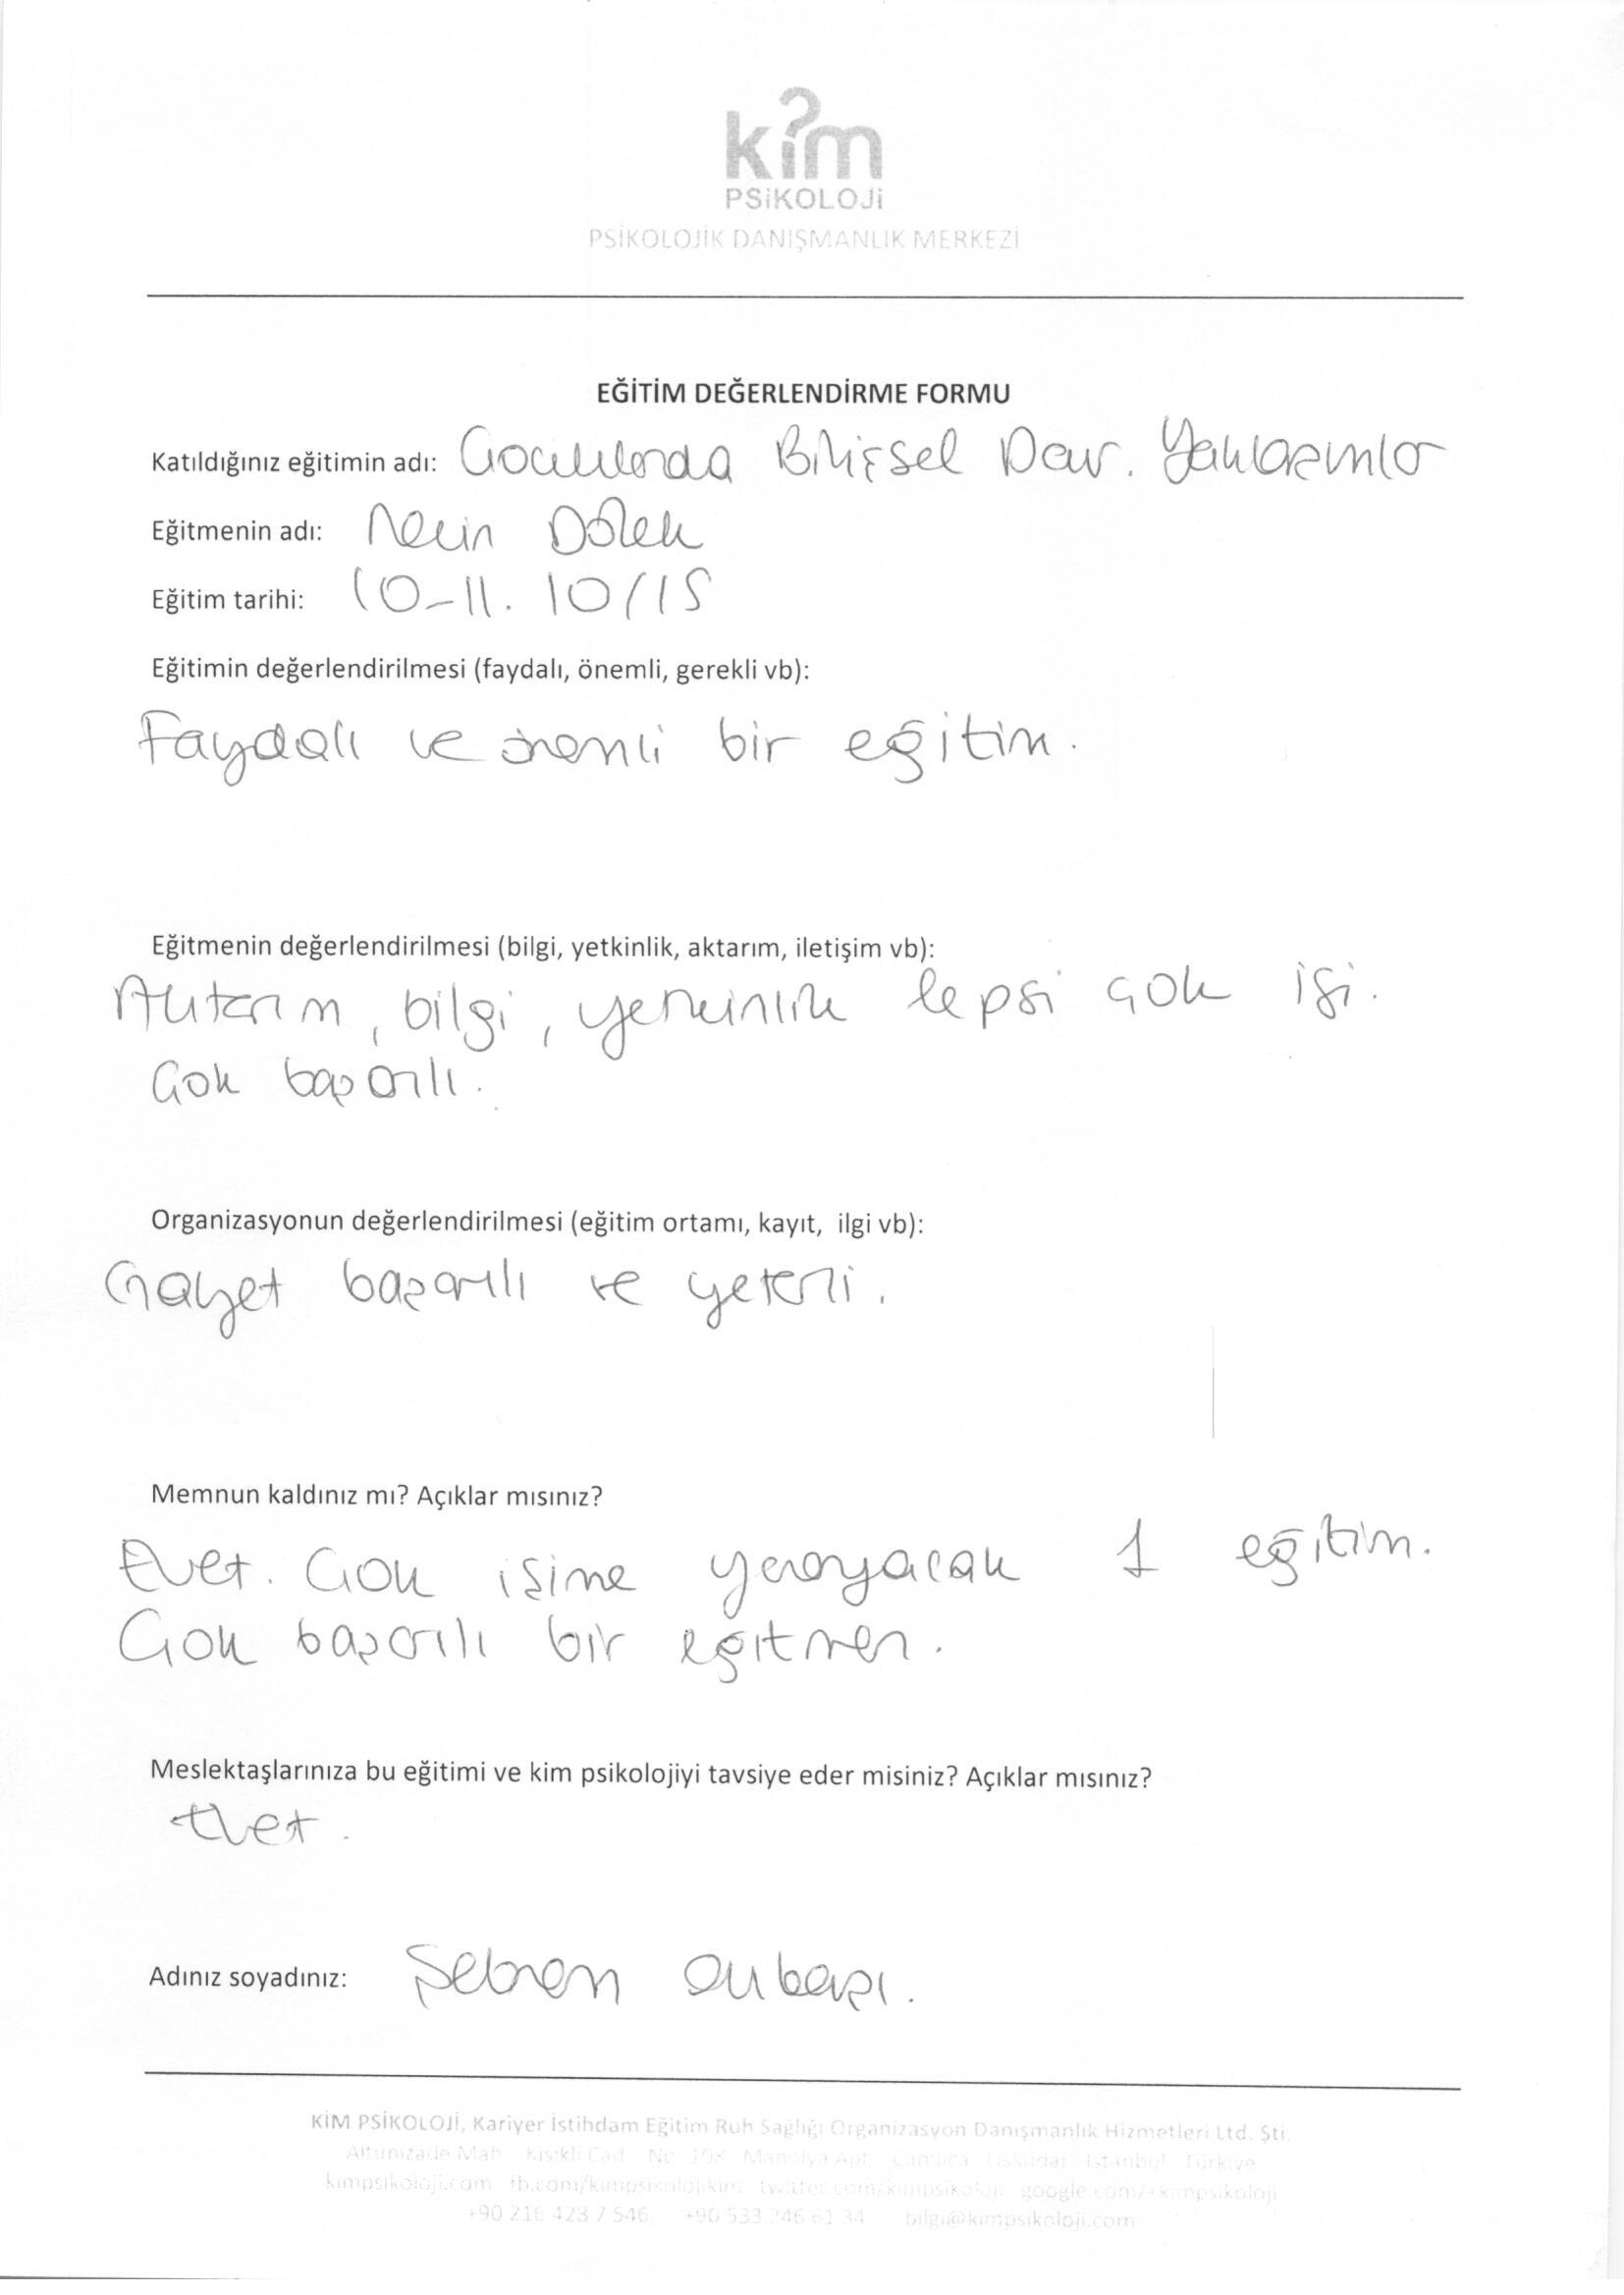 kim
PSiKOLOJi
PSİKOLOJİK DANIŞMANLIK MERKEZİ
EĞİTİM DEĞERLENDİRME FORMU
Katıldığınız eğitimin adı: Çocuklarda Bilişsel Dav. Yaklaşımlar
Eğitmenin adı: Necin Dölek
Eğitim tarihi: 10-11. 10/15
Eğitimin değerlendirilmesi (faydalı, önemli, gerekli vb):
Faydalı ve önemli bir eğitim.
Eğitmenin değerlendirilmesi (bilgi, yetkinlik, aktarım, iletişim vb):
Aktarım, bilgi, yetkinlik hepsi çok iyi.
Çok başarılı.
Organizasyonun değerlendirilmesi (eğitim ortamı, kayıt, ilgi vb):
Gayet başarılı ve yeterli.
Memnun kaldınız mı? Açıklar mısınız?
Evet. Çok işime yarayacak 1 eğitim.
Çok başarılı bir eğitmen.
Meslektaşlarınıza bu eğitimi ve kim psikolojiyi tavsiye eder misiniz? Açıklar mısınız?
Evet.
Adınız soyadınız: Şebnem
KİM PSİKOLOJİ, Kariyer İstihdam Eğitim Ruh Sağlığı Organizasyon Danışmanlık Hizmetleri Ltd. Şti.
Altunizade Mah. Kısıklı Cad. No Manolya Apt. Çamlıca Üsküdar İstanbul Türkiye
kimpsikoloji.com fb.com/kimpsikolojikim twitter.com/kimpsikoloji google.com/+kimpsikoloji
+90 216 423 7 546 +90 533 246 61 34 bilgi@kimpsikoloji.com